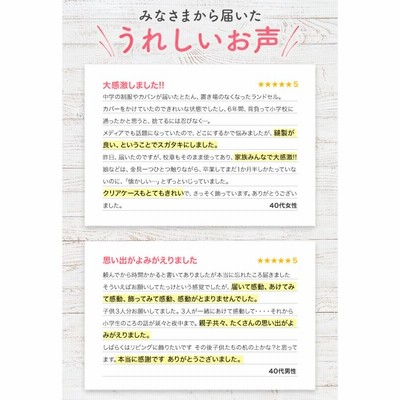 みなさまから届いた
うれしいお声
大感激しました!!
★★★★★5
中学の制服やカバンが届いたとたん、置き場のなくなったランドセル。
カバーをかけていたのできれいな状態でしたし、6年間、背負って小学校に
通ったかと思うと、捨てるには忍びなく…。
メディアでも話題になっていたので、どこにするかで悩みましたが、縫製が
良い、ということでスガタキにしました。
昨日、届いたのですが、校章もそのまま使ってあり、家族みんなで大感激!!
娘などは、金具一つひとつ触りながら、卒業してまだ1か月半しかたっていな
いのに、「懐かしい…」とずっといじっていました。
クリアケースもとてもきれいで、さっそく飾っています。ありがとうござい
ました。
40代女性
思い出がよみがえりました
★★★★★5
頼んでから時間かかると書いてありましたが本当に忘れたころ届きました
そういえばお願いしてたっけという感覚でしたが、届いて感動、あけてみ
て感動、飾ってみて感動、感動がとまりませんでした。
子供3人分お願いしてました。3人が一緒にあけて感動して・・・・それから
小学生のころの話が延々と夜中まで。親子共々、たくさんの思い出がよ
みがえりました。
しばらくはリビングに飾りたいです その後子供たちの机の上かな?と思って
ます。本当に感謝です ありがとうございました。
40代男性